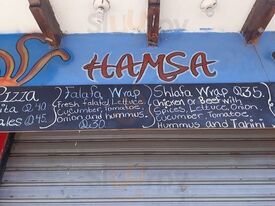 HAMSA
Pizza
ita Q40
ales Q45.
Falafa Wrap
Fresh falafel, Lettuce
Cucumber, Tomatoe,
Onion and hummus.
Q30
Shlafa Wrap Q35.
Chicken or Beef with
Spices, Lettuce, Onion,
Cucumber, Tomatoe,
Hummus and Tahini